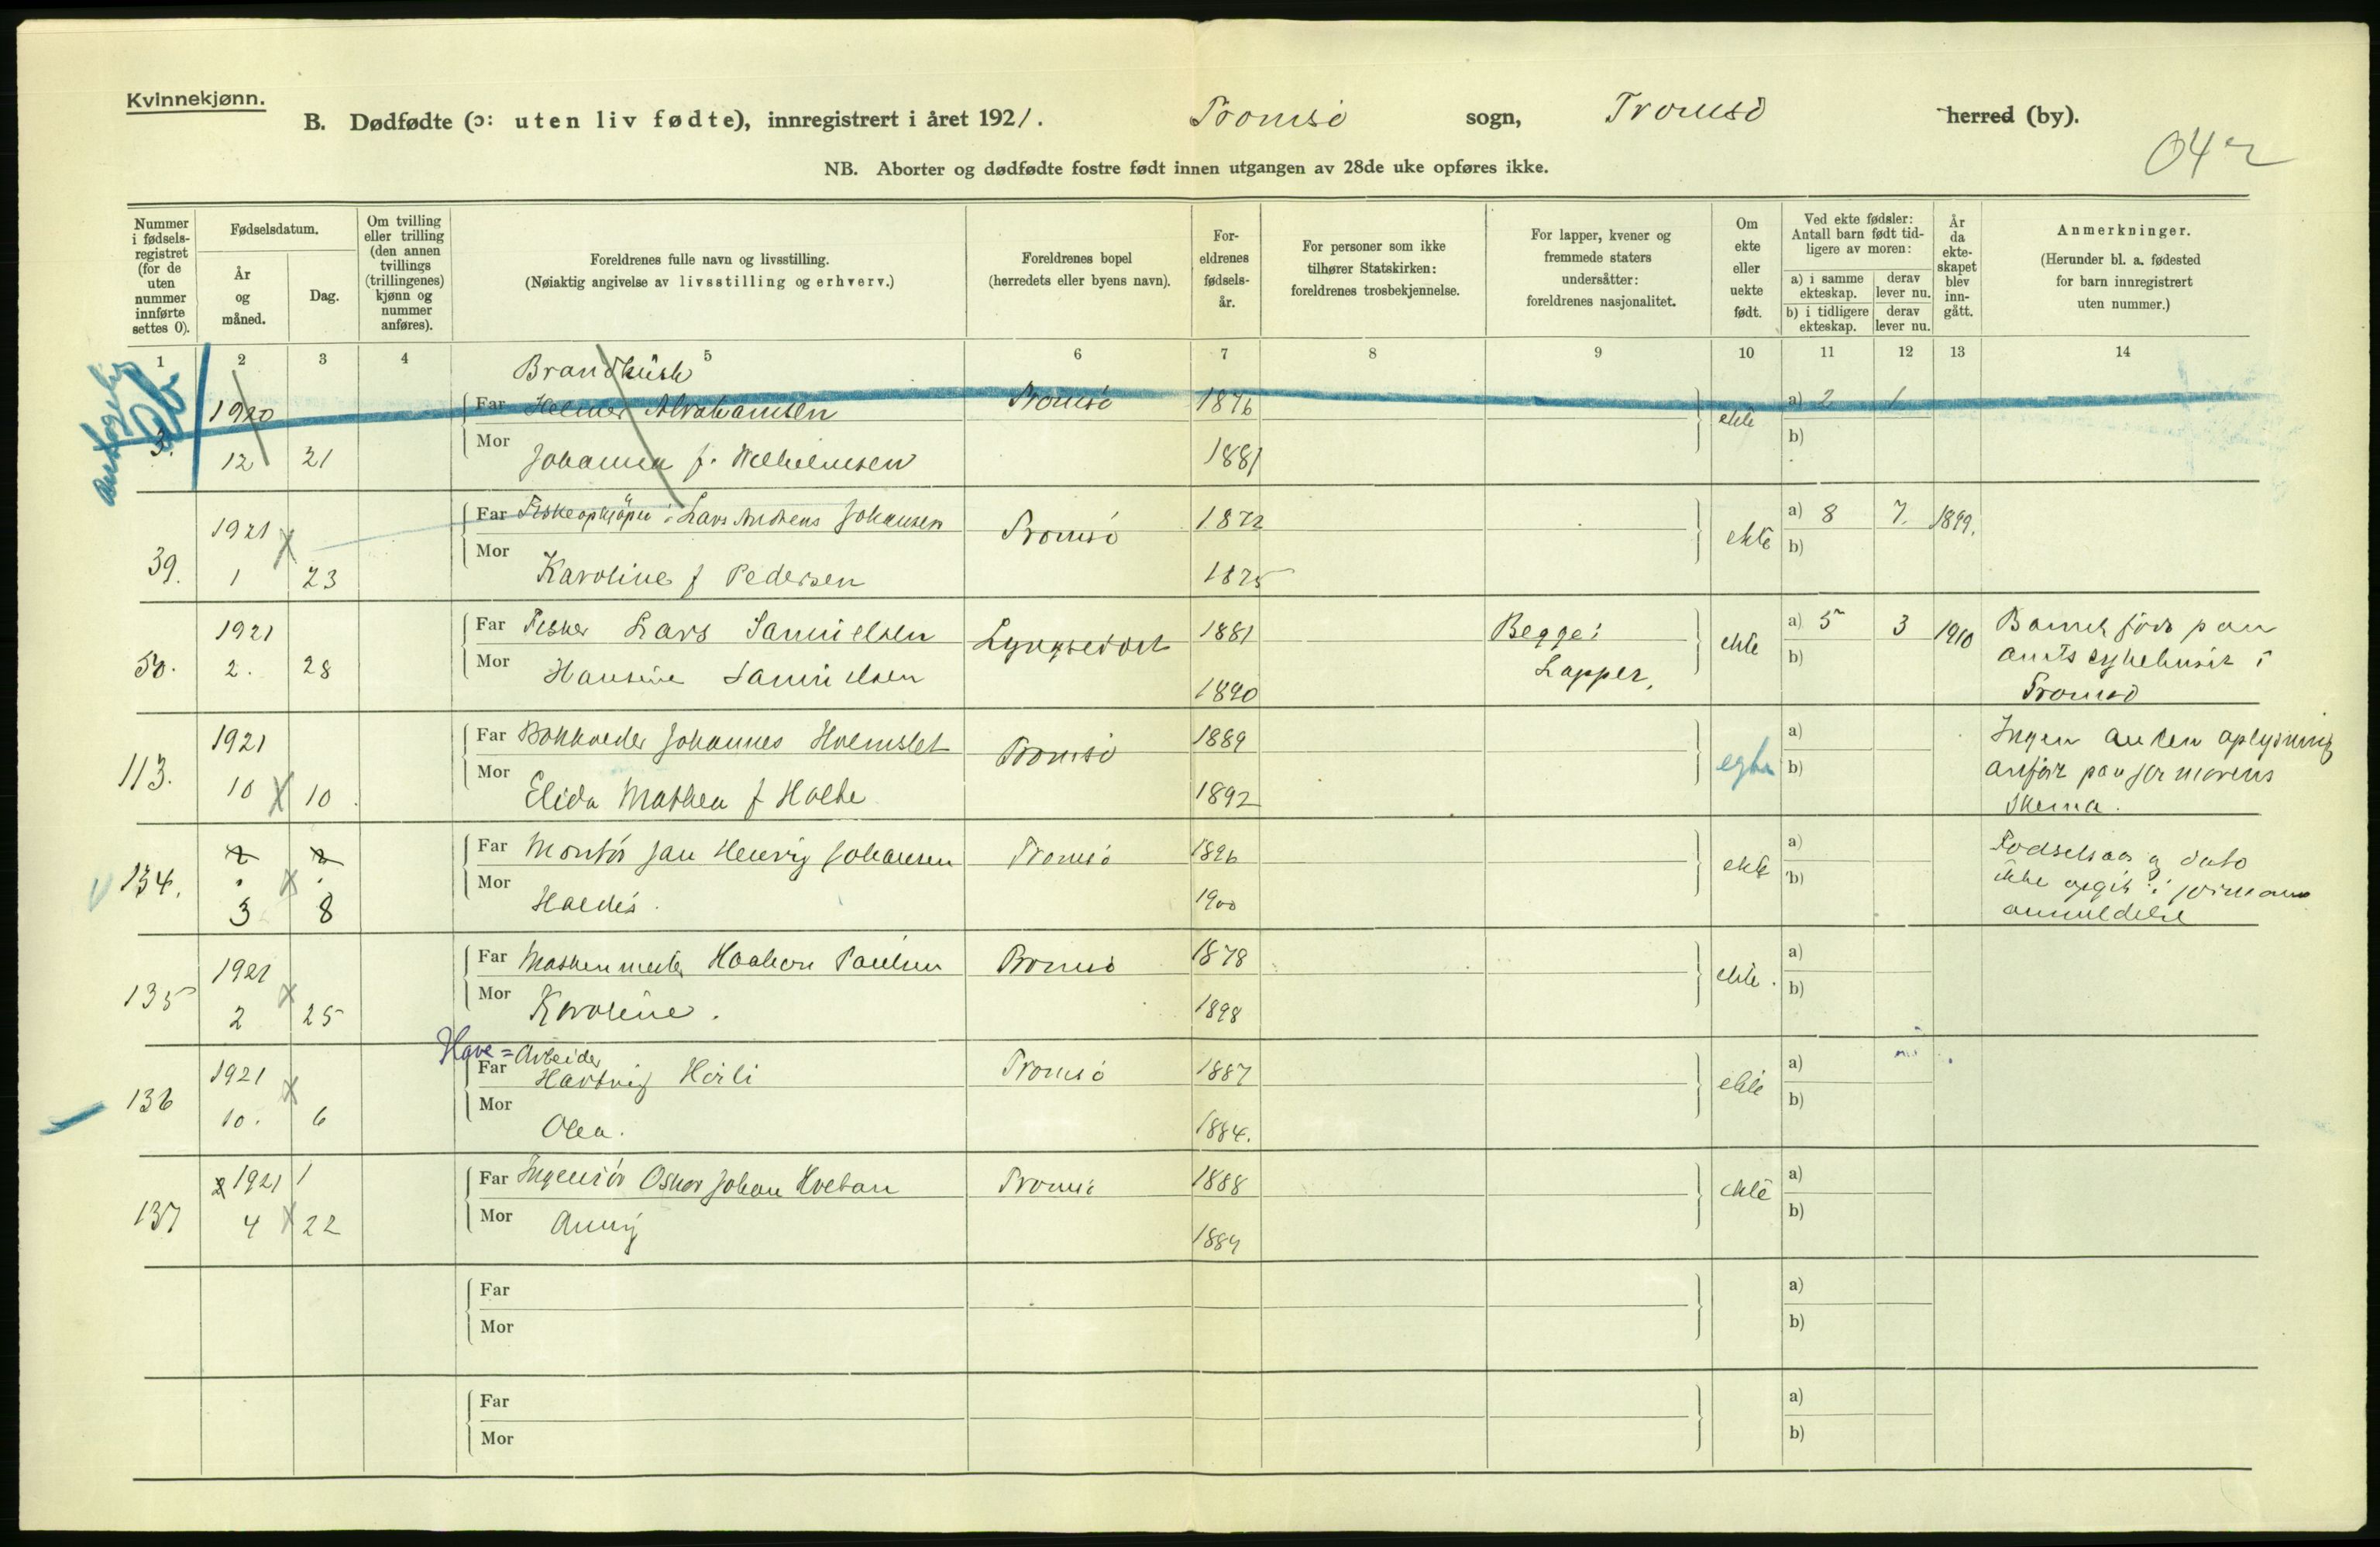 Kvinnekjønn.
B. Dødfødte (ɔ: uten liv fødte), innregistrert i året 1921. Tromsö sogn, Tromsö herred (by).
042
NB. Aborter og dødfødte fostre født innen utgangen av 28de uke opføres ikke.
Nummer
i fødsels-
registret
(for de
uten
nummer
innførte
settes 0).
Fødselsdatum.
År
og
måned.
Dag.
Om tvilling
eller trilling
(den annen
tvillings
(trillingenes)
kjønn og
nummer
anføres).
Foreldrenes fulle navn og livsstilling.
(Nøiaktig angivelse av livsstilling og erhverv.)
Foreldrenes bopel
(herredets eller byens navn).
For-
eldrenes
fødsels-
år.
For personer som ikke
tilhører Statskirken:
foreldrenes trosbekjennelse.
For lapper, kvener og
fremmede staters
undersåtter:
foreldrenes nasjonalitet.
Om
ekte
eller
uekte
født.
Ved ekte fødsler:
Antall barn født tid-
ligere av moren:
a) i samme
ekteskap.
derav
lever nu.
b) i tidligere
ekteskap.
derav
lever nu.
År
da
ekte-
skapet
blev
inn-
gått.
Anmerkninger.
(Herunder bl. a. fødested
for barn innregistrert
uten nummer.)
1 2 3 4 5 6 7 8 9 10 11 12 13 14
3. 1920
12 21
Far Helmer Abrahamsen Tromsö 1876 ekte a) 2 1
Mor Johanna f. Wilhelmsen 1881 b)
39. 1921
1 23
Far Fiskeopkjöper Lars Andreas Johansen Tromsö 1872 ekte a) 8 7. 1899.
Mor Karoline f Pedersen 1875 b)
50. 1921
2. 28
Far Fisker Lars Samuelsen Lyngseidet 1881 Begge: ekte a) 5 3 1910
Mor Hansine Samuelsen 1890 Lapper. b)
Barnet född paa
amtssykehuset i
Tromsö
113. 1921
10 10.
Far Johannes Holmslet Tromsö 1889 egte a)
Mor Elida Mathea f Holte 1892 b)
Ingen anden oplysning
anfört paa jormorens
Skema.
134. 2 2
3 8
Far Montör Jan Henrig Johansen Tromsö 1896 ekte a)
Mor Haldis. 1900 b)
Födselsaar og dato
ikke opgit i
anmeldelse
135 1921
2 25
Far Maskinmester Haakon Paulsen Tromsö 1878 ekte. a)
Mor Karoline. 1898 b)
136 1921
10. 6
Have = Arbeider
Far Hartvig Horli Tromsö 1887 ekte a)
Mor Olea. 1884. b)
137 1921 1
4 22
Far Ingeniör Oskar Johan Kveban Tromsö 1888 ekte a)
Mor Anny 1889 b)
Far a)
Mor b)
Far a)
Mor b)